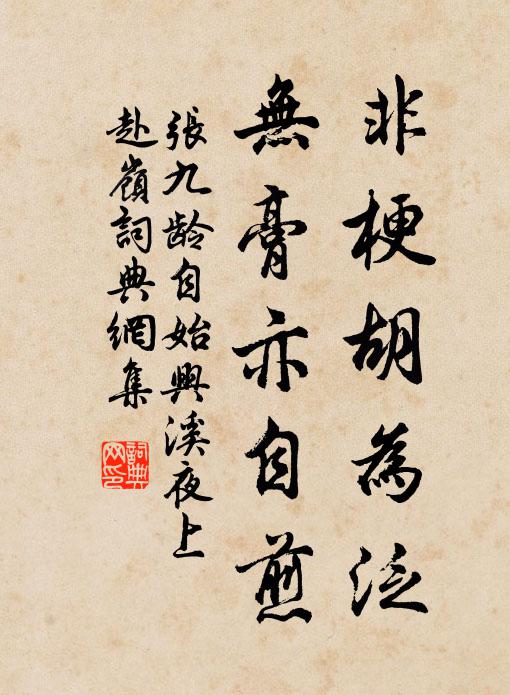 非梗胡為泛
無膏亦自煎
張九齡自始興溪夜上
赴嶺詞典網集
詞典
网印